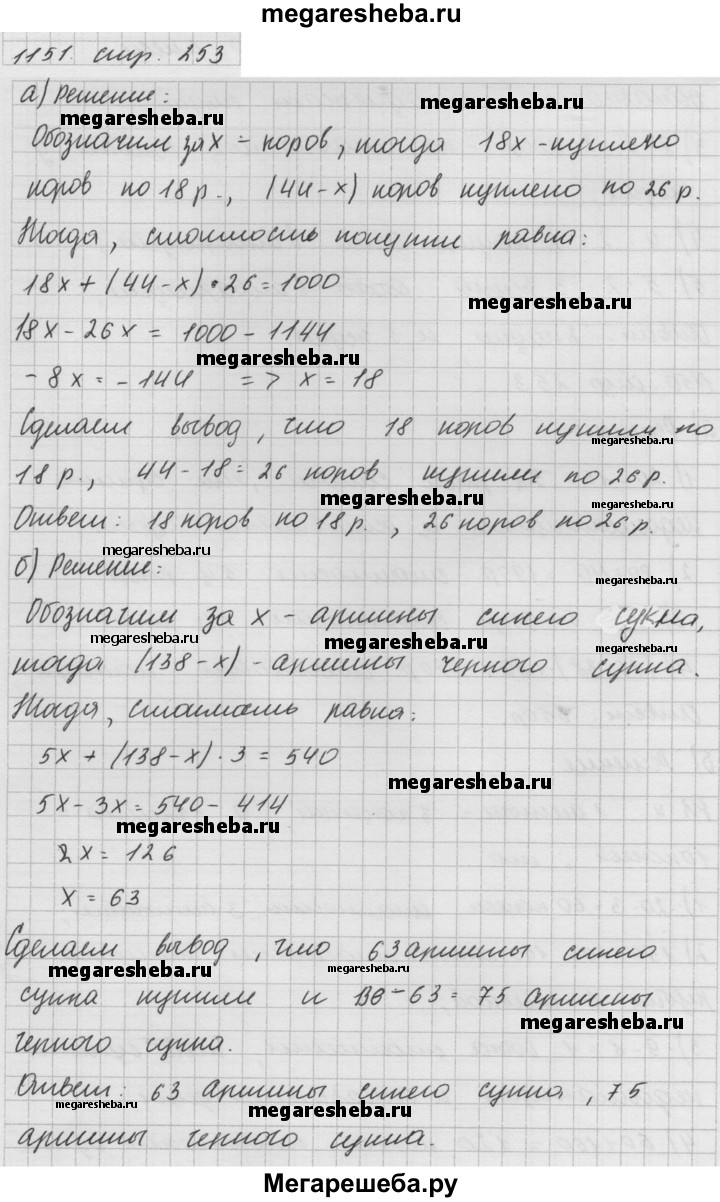 megaresheba.ru
1151. стр. 253
а) Решение:
megaresheba.ru
megaresheba.ru
Обозначим за x - коров, тогда 18x - куплено
коров по 18 р., (44-x) коров куплено по 26 р.
Тогда, стоимость покупки равна:
18x + (44-x) • 26 = 1000
megaresheba.ru
18x - 26x = 1000 - 1144
megaresheba.ru
-8x = -144 => x = 18
Сделаем вывод, что 18 коров купили по
megaresheba.ru
18 р., 44-18 = 26 коров купили по 26 р.
megaresheba.ru
megaresheba.ru
Ответ: 18 коров по 18 р., 26 коров по 26 р.
megaresheba.ru
б) Решение:
megaresheba.ru
megaresheba.ru
Обозначим за x - аршины синего сукна,
megaresheba.ru
megaresheba.ru
megaresheba.ru
тогда (138-x) - аршины черного сукна.
Тогда, стоимость равна:
5x + (138-x) • 3 = 540
megaresheba.ru
5x - 3x = 540 - 414
megaresheba.ru
2x = 126
x = 63
Сделаем вывод, что 63 аршины синего
megaresheba.ru
megaresheba.ru
сукна купили и 138-63 = 75 аршины
megaresheba.ru
черного сукна.
Ответ: 63 аршины синего сукна, 75
megaresheba.ru
megaresheba.ru
аршины черного сукна.
Мегарешеба.ру